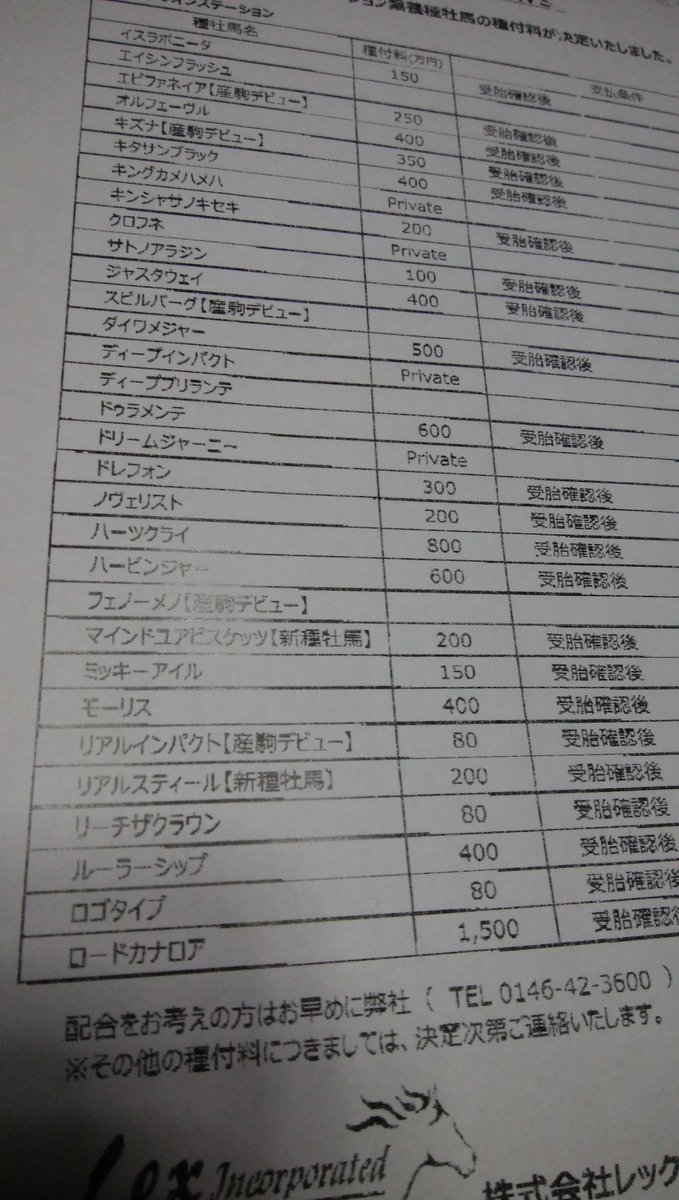 ション繋養種牡馬の種付料が決定いたしました。
オンステーション
種牡馬名 種付料(万円) 支払条件
イスラボニータ 150 受胎確認後
エイシンフラッシュ
エピファネイア【産駒デビュー】 250 受胎確認後
オルフェーヴル 400 受胎確認後
キズナ【産駒デビュー】 350 受胎確認後
キタサンブラック 400 受胎確認後
キングカメハメハ Private
キンシャサノキセキ 200 受胎確認後
クロフネ Private
サトノアラジン 100 受胎確認後
ジャスタウェイ 400 受胎確認後
スピルバーグ【産駒デビュー】
ダイワメジャー 500 受胎確認後
ディープインパクト Private
ディープブリランテ
ドゥラメンテ 600 受胎確認後
ドリームジャーニー Private
ドレフォン 300 受胎確認後
ノヴェリスト 200 受胎確認後
ハーツクライ 800 受胎確認後
ハービンジャー 600 受胎確認後
フェノーメノ【産駒デビュー】
マインドユアビスケッツ【新種牡馬】 200 受胎確認後
ミッキーアイル 150 受胎確認後
モーリス 400 受胎確認後
リアルインパクト【産駒デビュー】 80 受胎確認後
リアルスティール【新種牡馬】 200 受胎確認後
リーチザクラウン 80 受胎確認後
ルーラーシップ 400 受胎確認後
ロゴタイプ 80 受胎確認後
ロードカナロア 1,500 受胎確認後
配合をお考えの方はお早めに弊社（ TEL 0146-42-3600 ）
※その他の種付料につきましては、決定次第ご連絡いたします。
Lex Incorporated 株式会社レック